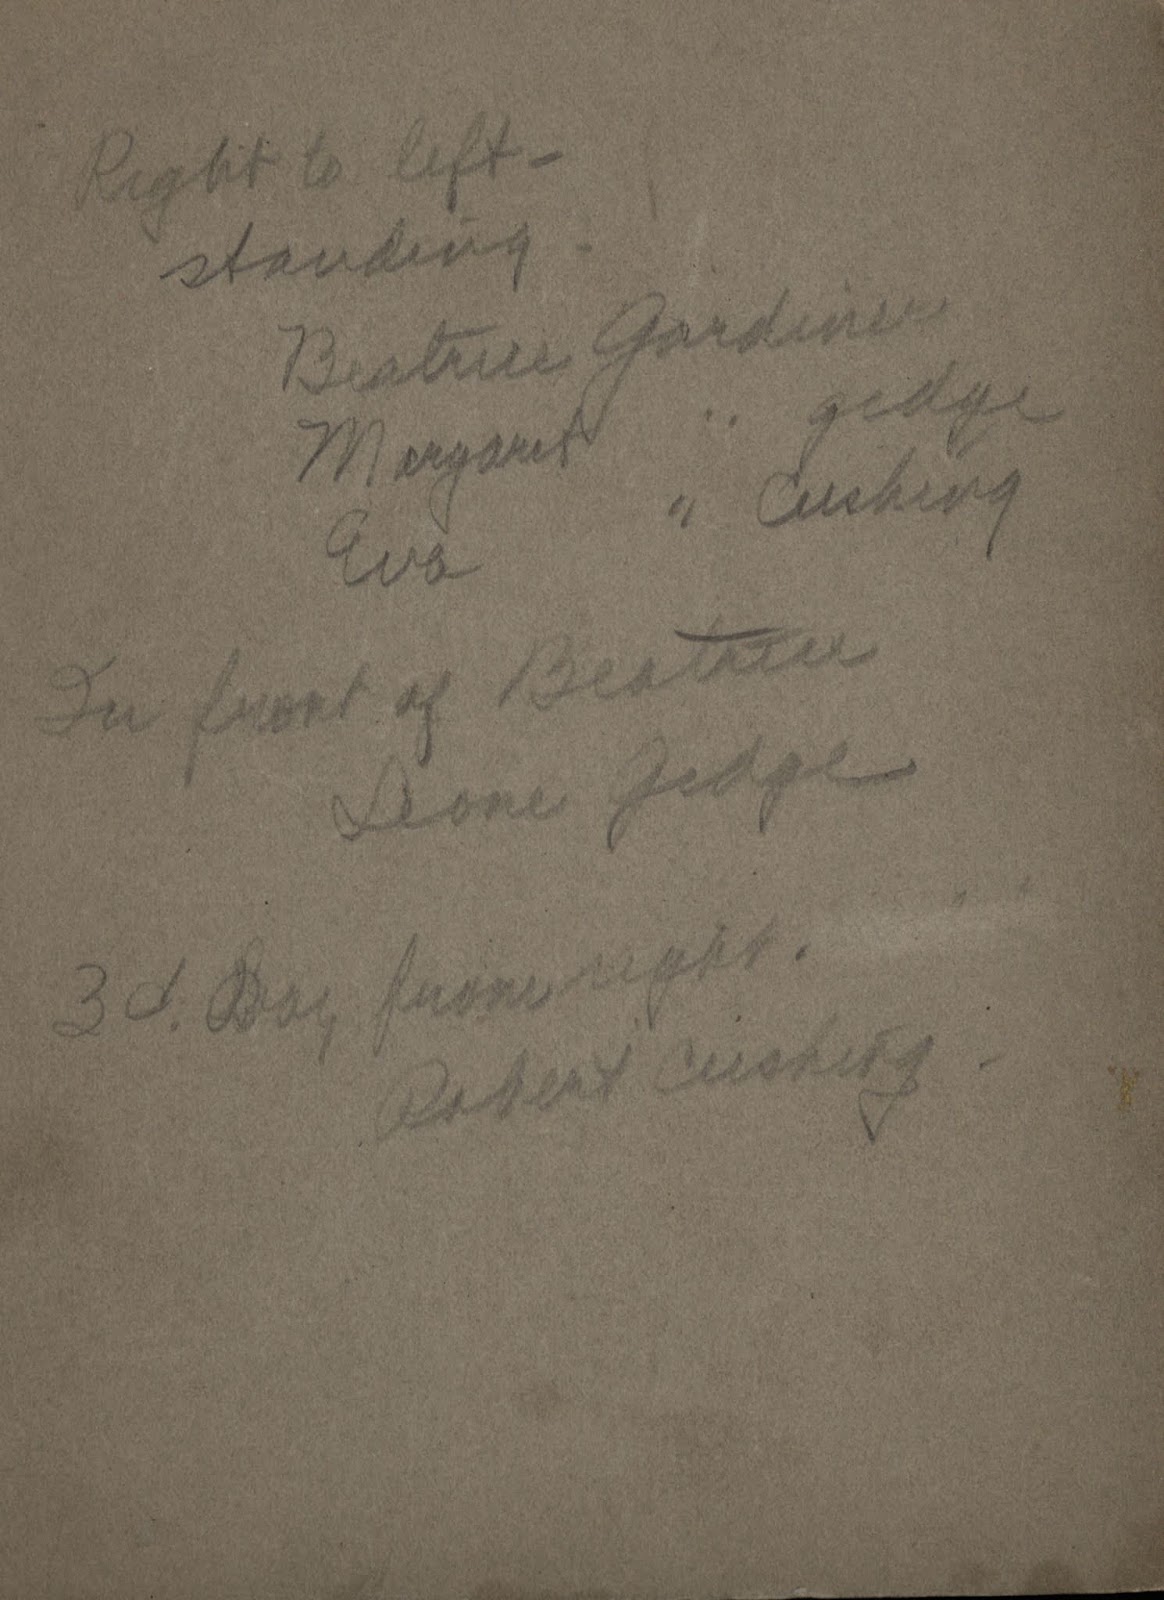 Right to left -
standing -
Beatrice Gardiner
Margaret " gedge
Eva " Cushing
In front of Beatrice
Leone Gedge
3d. Boy from right.
Robert Cushing -